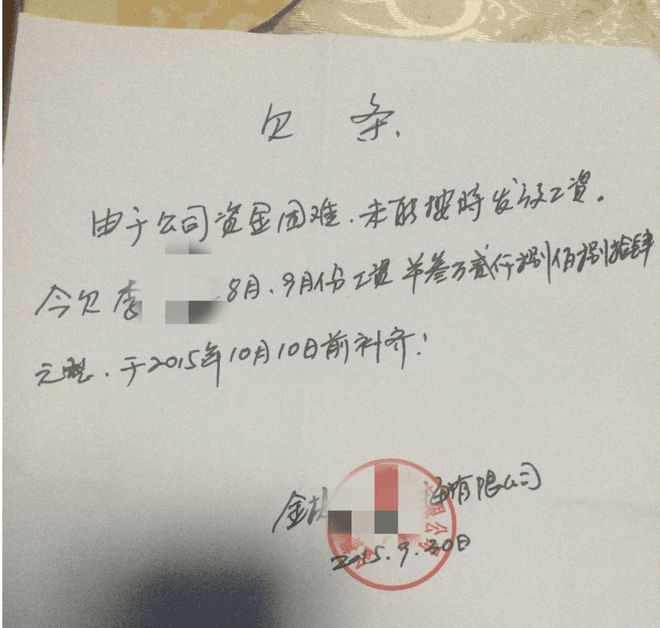 欠条
由于公司资金困难,未能按时发放工资。
今欠李 8月、9月份工资 叁万贰仟捌佰捌拾肆
元整,于2015年10月10日前补齐!
金 有限公司
2015.9.30日
限公